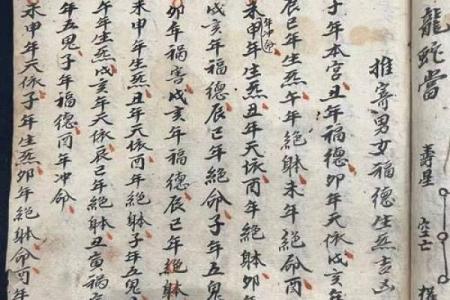 龍蛇當
壽星 空亡
推寄男女福德生炁吉凶
子年本宮丑年福德卯年天依戌亥年
辰巳年生炁午年絕躰未年絕命酉
未申年生炁丑年天依酉年絕躰卯年
戌亥年福德辰巳年絕命子年五鬼
卯年禍害戌亥年福德辰巳年絕躰
未申年生炁丑年天依酉年絕躰子年五鬼
午年生炁戌亥年天依辰巳年絕躰丑寅禍
年五鬼子年福德酉年冲命
未申年天依子年生炁卯年絕躰命酉年